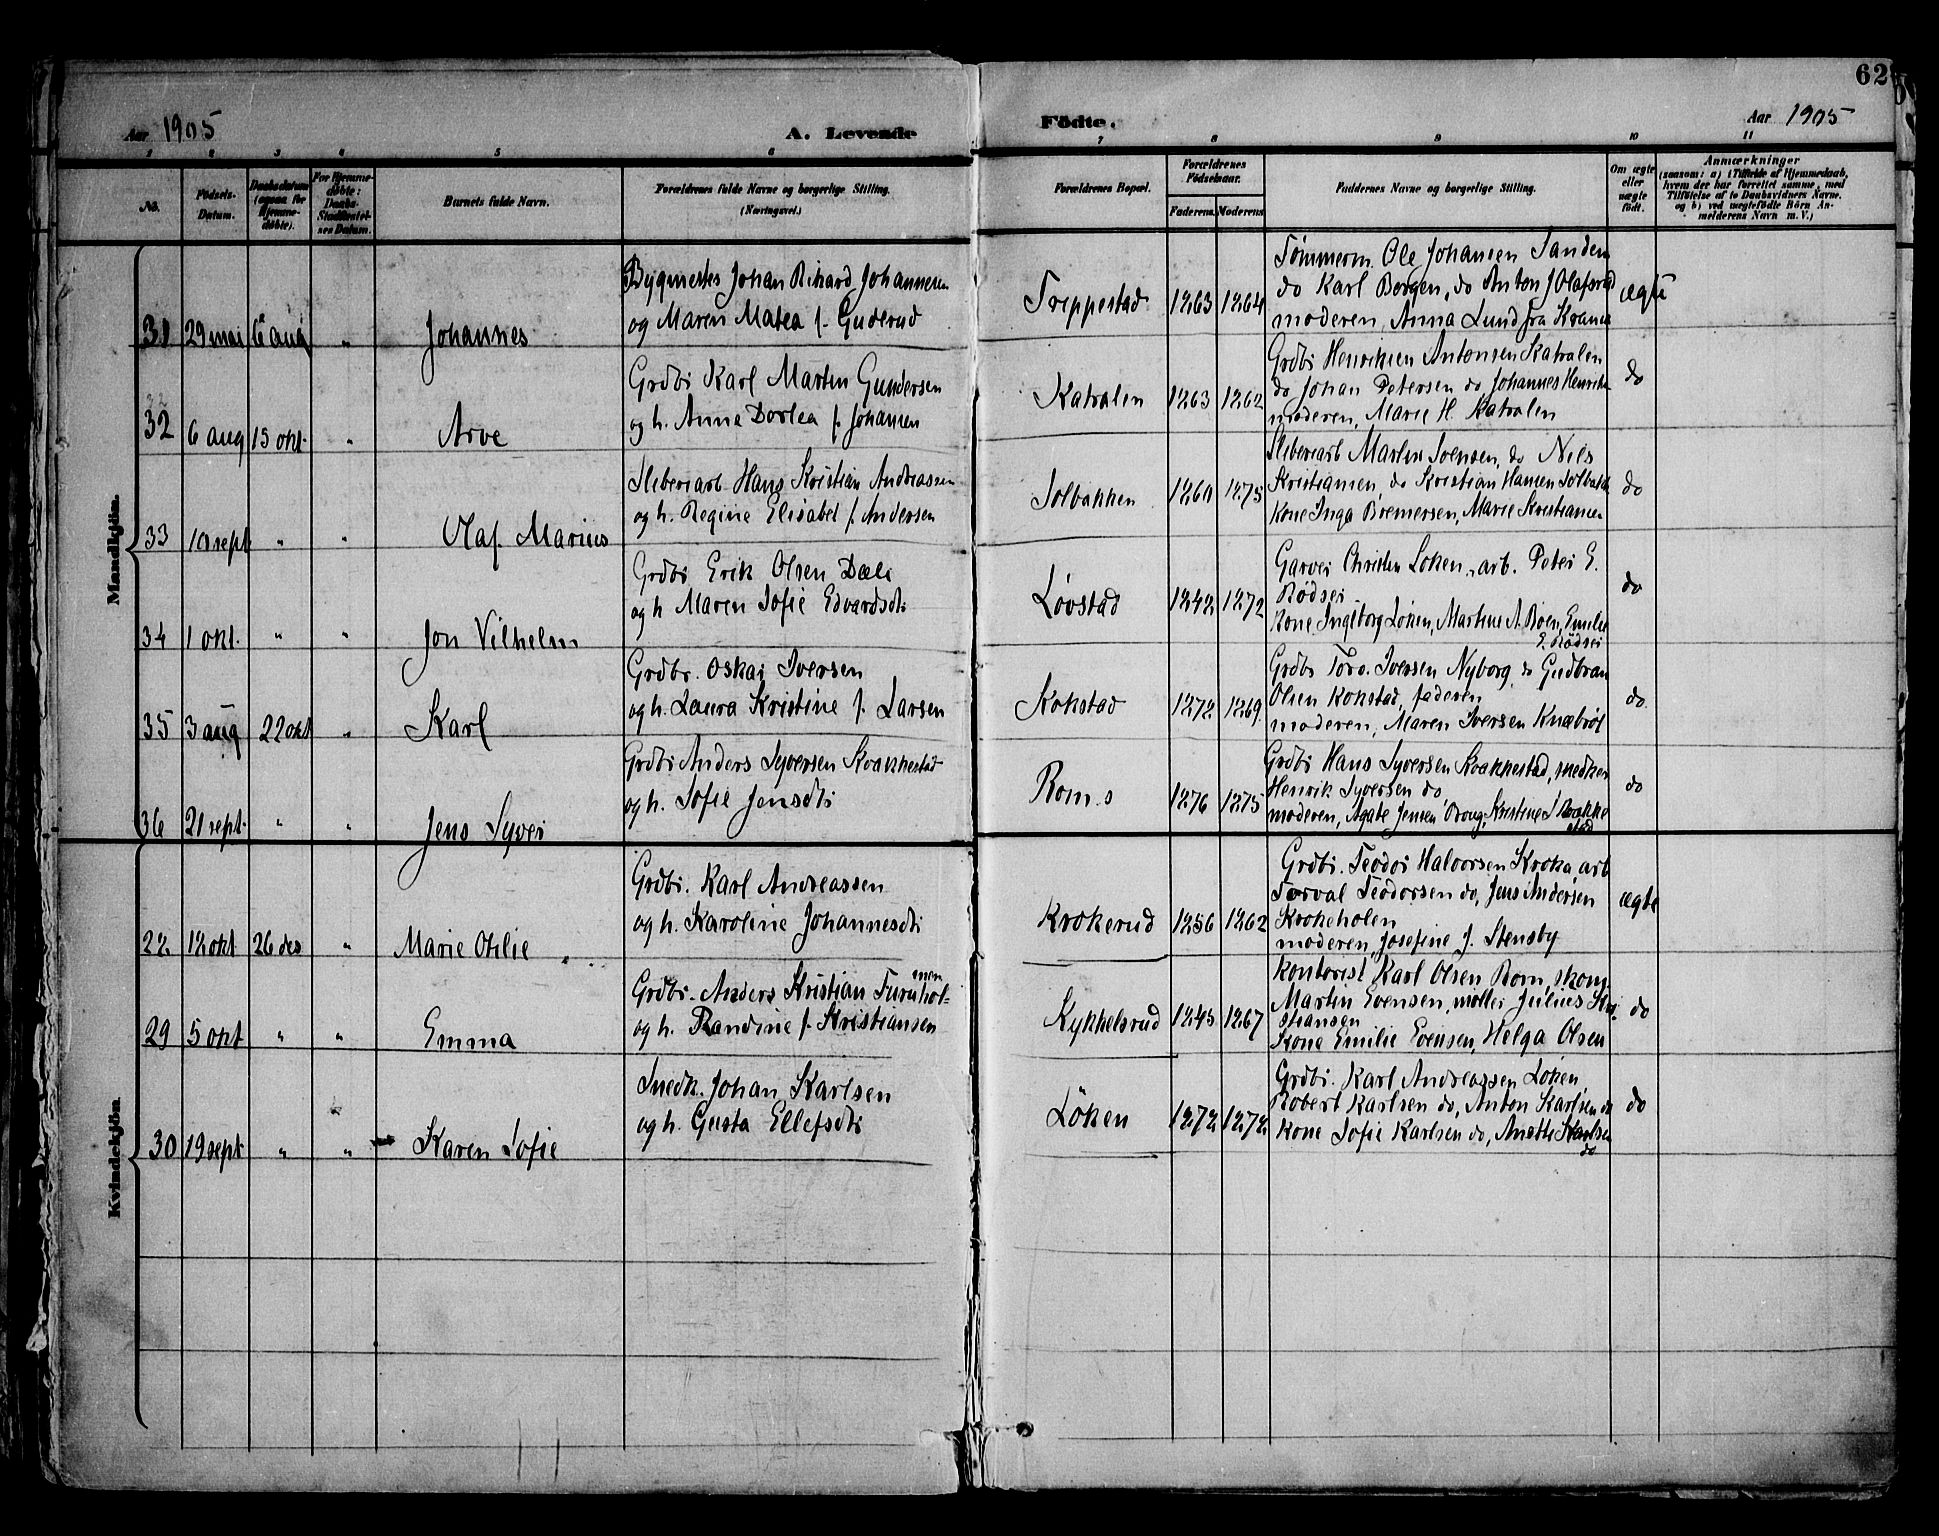 62
Aar 1905
A. Levende
Födte.
Aar 1905
1 2 3 4 5 6 7 8 9 10 11
No.
Födsels-Datum.
Daabsdatum (ogsaa for Hjemmedöbte).
For Hjemmedöbte: Daabs-Stadfæstelses Datum.
Barnets fulde Navn.
Forældrenes fulde Navne og borgerlige Stilling.
(Næringsvei.)
Forældrenes Bopæl.
Forældrenes Födselsaar.
Faderens. Moderens
Faddernes Navne og borgerlige Stilling.
Om ægte eller uægte født.
Anmærkninger
(saasom: a) i Tilfælde af Hjemmedaab,
hvem der har forrettet samme, med
Tilföielse af to Daabsvidners Navne,
og b) ved uægtefödte Börn An-
melderens Navn m.V.)
Mandkjön.
31 29 mai 6 aug " Johannes
Bygmester Johan Rikard Johannesen
og Maren Matea f. Guderud
Treppestad 1863 1864
Tømmerm. Ole Johansen Sanden
do Karl Borgen, do Anton J Olafsrud
moderen, Anna Lund fra
ægte
32
32 6 aug 15 okt. " Arve
Grdbr Karl Martin Gundersen
og h. Anna Dorlea f. Johansen
Katralen 1863 1862
Grdbr Henriksen Antonsen Katralen
do Johan Petersen do Johannes Henriks
moderen, Marie H. Katralen
do
33 10 sept " " Olaf Marius
Sliberiarb Hans Kristian Andreassen
og h. Regine Elisabet f. Andersen
Solbakken 1860 1875
Sliberiarb Martin Svensen, do Nils
Kristiansen, do Kristian Hansen Solbakk
Kone Inga Bremersen, Marie Kristiansen
do
34 1 okt. " " Jon Vilhelm
Grdbr Erik Olsen Dæli
og h Maren Sofie Edvardsdtr
Løvstad 1842 1872
Garver Christen Løken, arb. Peter E.
Rödsei
Kone Ingeborg Löken, Martine A Boen, Emilie
E. Rödsei
do
35 3 aug 22 okt " Karl
Grdbr. Oskar Iversen
og h. Laura Kristine f. Larsen
Kokstad 1872 1869
Grdbr Torv. Iversen Nyborg, do Gudbran
Olsen Kokstad, faderen
moderen, Maren Iversen Knæbröl
do
36 21 sept. " " Jens Syver
Grdbr Anders Syversen Kvakkestad
og h. Sofie Jensdtr
Roms 1876 1875
Grdbr Hans Syversen Kvakkestad, snedker
Henrik Syversen do
moderen, Agate Jensen Boug, Kristine S Kvakke
stad
do
Kvindekjön
28 12 okt 26 des " Marie Otilie
Grdbr. Karl Andreassen
og h. Karoline Johannesdtr
Krokerud 1856 1862
Grdbr. Teodor Halvorsen Kroka, arb
Torval Teodorsen do, Jens Andersen
Krokeholen
moderen, Josefine f. Stensby
ægte
29 5 okt " " Emma
men
Grdbr. Anders Kristian Furuhol-
og h. Randine f. Kristiansen
Kykkelsrud 1845 1867
Kontorist Karl Olsen Rom, skom.
Martin Evensen, møller Julius Kri-
stiansen
Kone Emilie Evensen, Helga Olsen
do
30 19 sept " " Karen Sofie
Snedk. Johan Karlsen
og h. Gusta Ellefsdtr
Löken 1872 1872
Grdbr. Karl Andreassen Löken,
Robert Karlsen do, Anton Karlsen do
Kone Sofie Karlsen do, Anette Karlsen
do
do